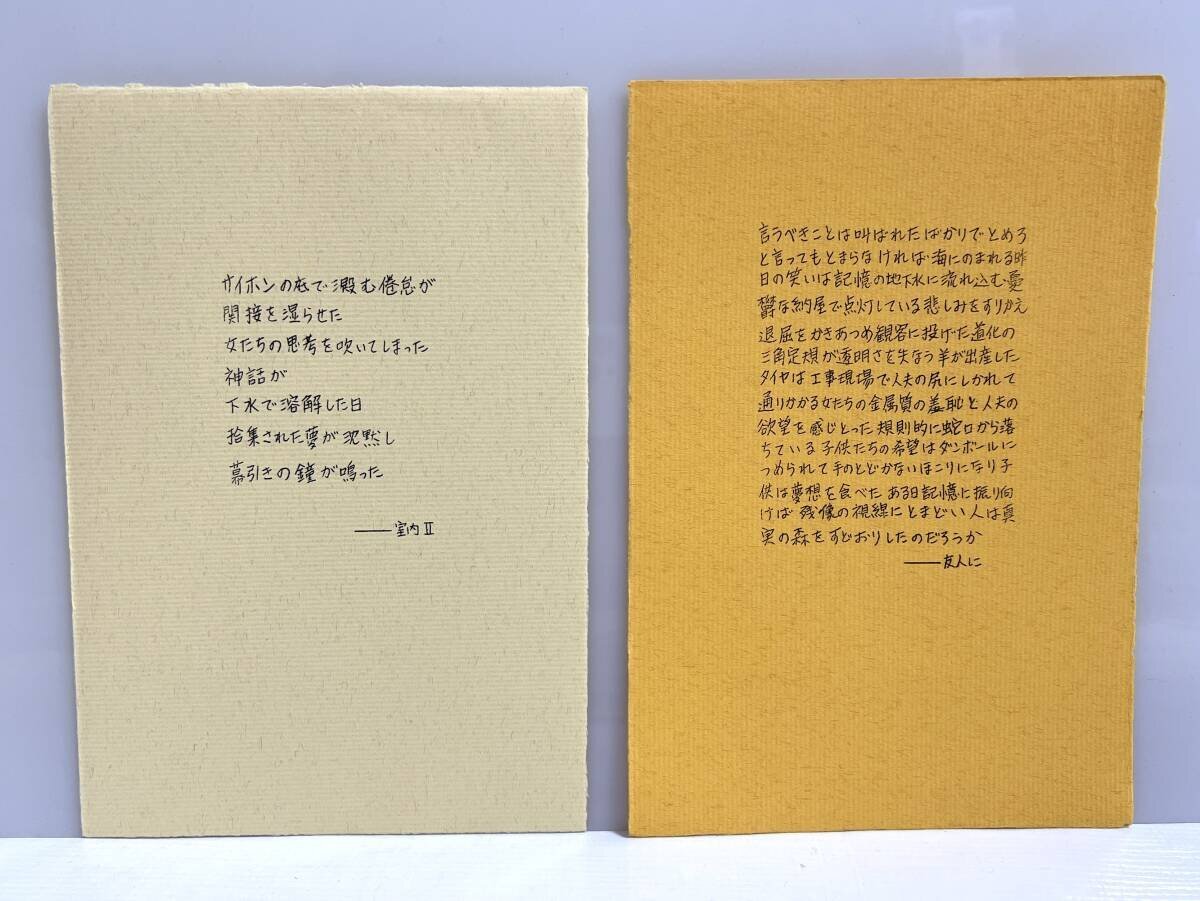 サイホンの底で澱む倦怠が
関接を湿らせた
女たちの思考を吹いてしまった
神話が
下水で溶解した日
拾集された夢が沈黙し
幕引きの鐘が鳴った
——室内Ⅱ
言うべきことは叫ばれたばかりでとめろ
と言ってもとまらなければ海にのまれる昨
日の笑いは記憶の地下水に流れ込む憂
鬱な納屋で点灯している悲しみをすりかえ
退屈をかきあつめ観客に投げた道化の
三角定規が透明さを失なう羊が出産した
ダイヤは工事現場で人夫の尻にしかれて
通りかかる女たちの金属質の羞恥と人夫の
欲望を感じとった規則的に蛇口から落
ちている子供たちの希望はダンボールに
つめられて手のとどかないほこりになり子
供は夢想を食べたある日記憶に振り向
けば残像の視線にとまどい人は真
実の森をすどおりしたのだろうか
——友人に